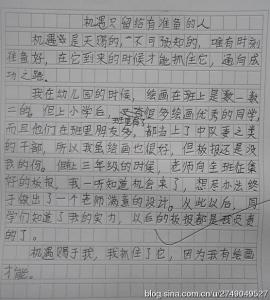 机遇只留给有准备的人
机遇是天赐的,不可预知的,唯有时刻
准备好,在它到来的时候才能抓住它,迈向成
功之路。
我在幼儿园的时候,绘画在班上是数一数
二的。但上小学后,班里有很多绘画优秀的同学,
而且他们在班里朋友多,都当上了中队委之类
的干部,所以我虽绘画也很好,但板报还是没
我的份。但让三年级的时候,老师向全班征集
好的板报,我一听知道机会来了,想尽办法
终于做出了一个老师满意的设计。从此以后,同
学们知道了我的实力,以后的板报都是我负责
的了。
机遇赐于我,我抓住了它,因为我有绘画
才能。
blog.sina.com.cn/u/2749049527